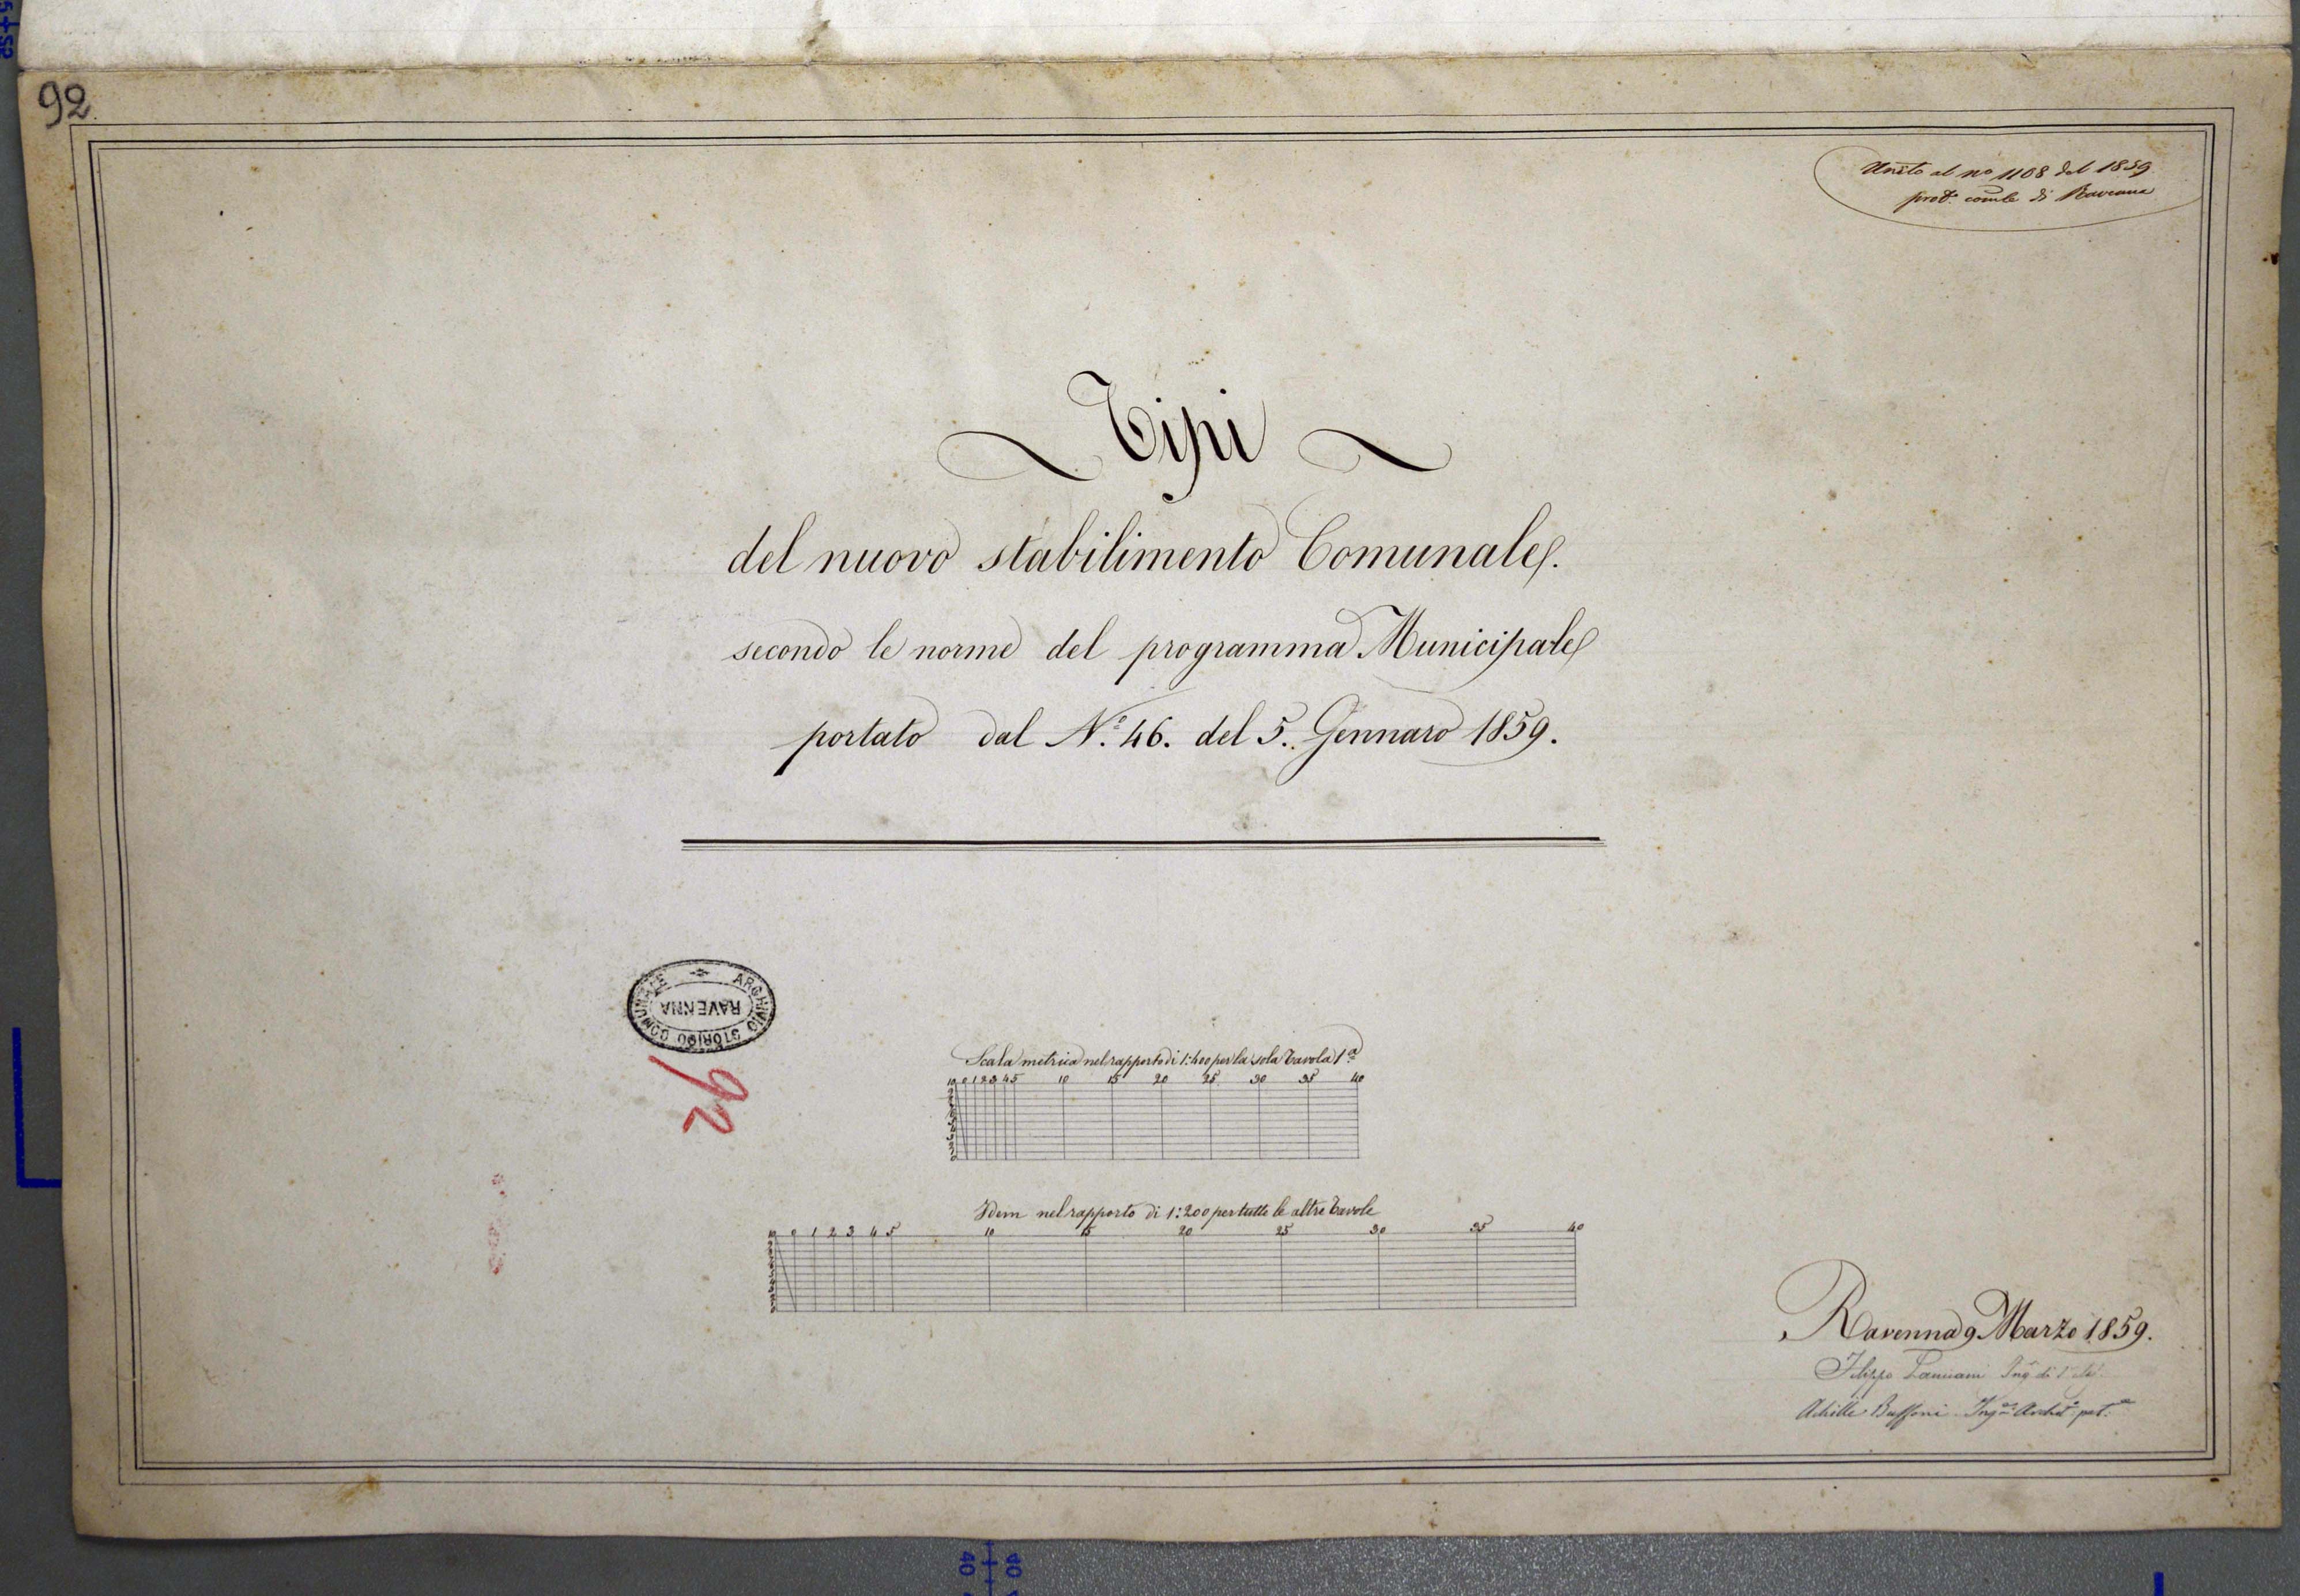 92
Unito al no 1108 del 1859
prot. comle di Ravenna
Tipi
del nuovo stabilimento Comunale.
secondo le norme del programma Municipale
portato dal N.º 46. del 5. Gennaro 1859.
ARCHIVIO STORICO COMUNALE
RAVENNA
92
Scala metrica nel rapporto di 1:400 per la sola Tavola 1ª
10 0 1 2 3 4 5 10 15 20 25 30 35 40
Idem nel rapporto di 1:200 per tutte le altre Tavole
10 0 1 2 3 4 5 10 15 20 25 30 35 40
Ravenna 9 Marzo 1859.
Filippo Lanciani Ing.
Achille Buffoni Ing.re Archit.º
40 40